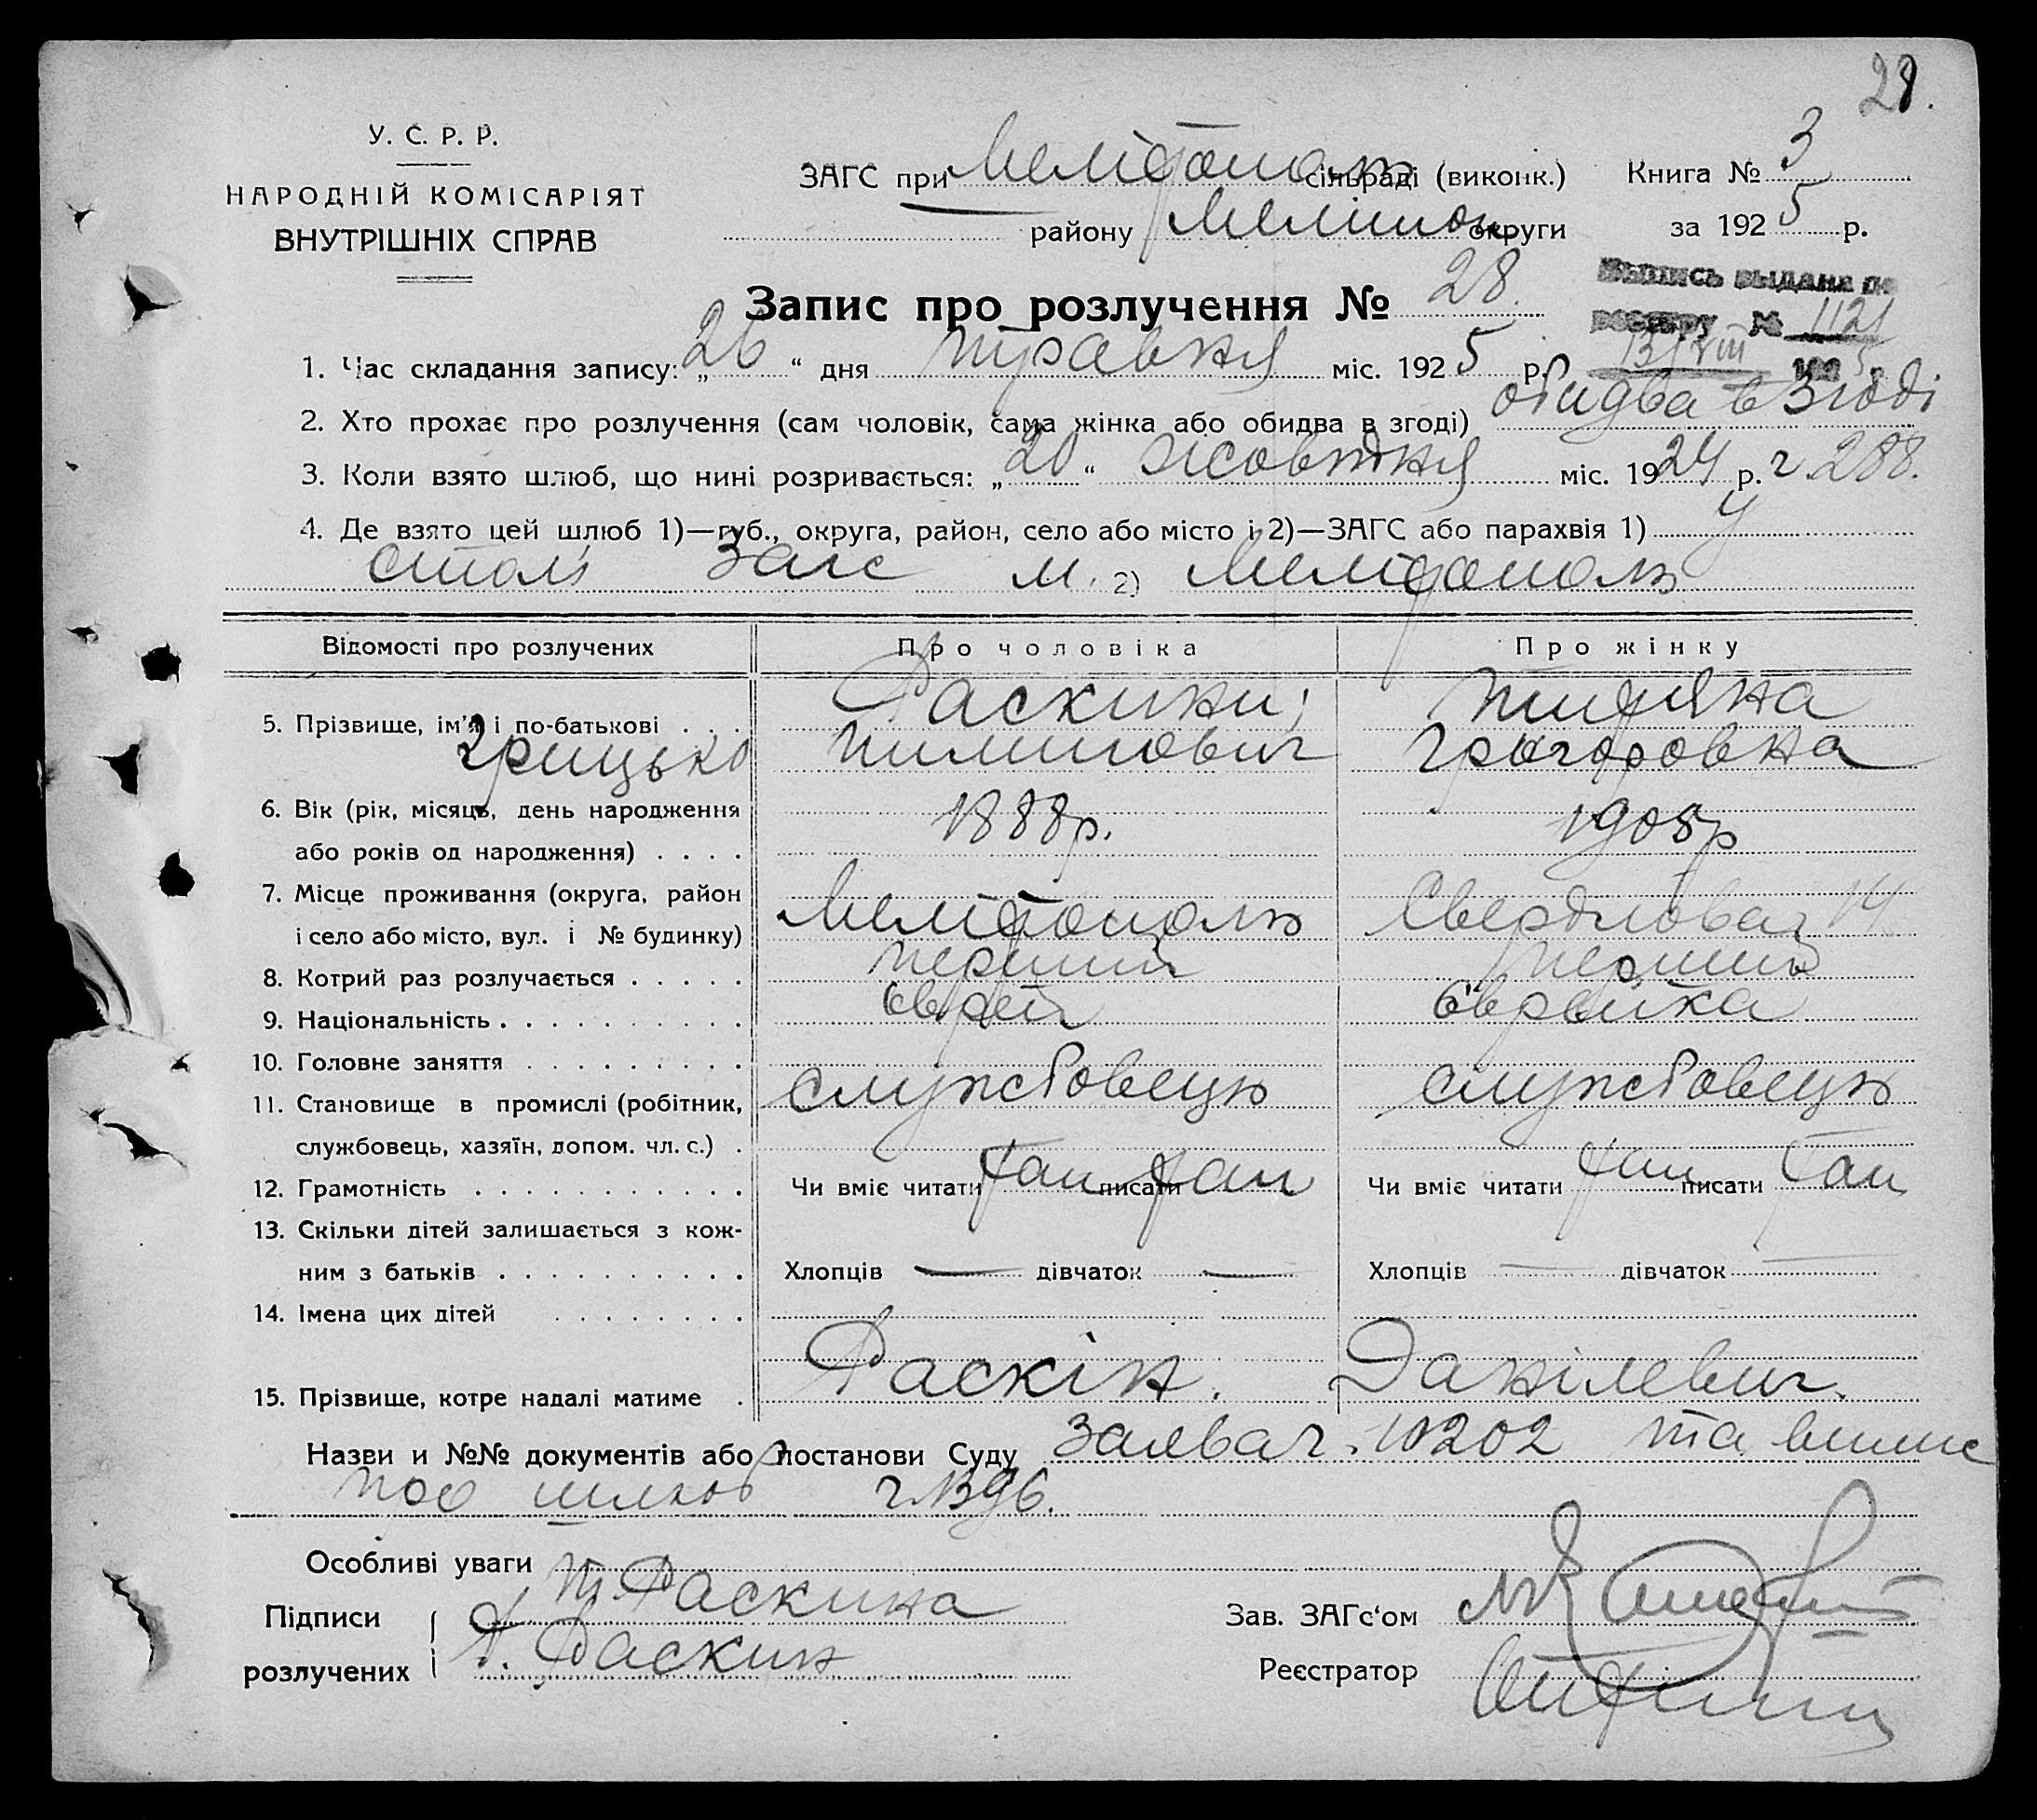 28.
У. С. Р. Р.
НАРОДНІЙ КОМІСАРІЯТ
ВНУТРІШНІХ СПРАВ
ЗАГС при Мелітополь сільраді (виконк.) Книга № 3
району Мелітоп округи за 1925 р.
Запис про розлучення № 28.
Выпись выдана по
реестру № 1121
13/VIII 1925
1. Час складання запису: „26“ дня травня міс. 1925 р.
2. Хто прохає про розлучення (сам чоловік, сама жінка або обидва в згоді) обидва в згоді
3. Коли взято шлюб, що нині розривається: „20“ жовтня міс. 1924 р. ч 288.
4. Де взято цей шлюб 1)—губ., округа, район, село або місто і 2)—ЗАГС або парахвія 1) У
столі Загс м. 2) Мелітополь
Відомості про розлучених Про чоловіка Про жінку
5. Прізвище, ім'я і по-батькові . . . Раскини;
Грицько Григоровна
6. Вік (рік, місяць, день народження 1888р. 1905р
або років од народження) . . . .
7. Місце проживання (округа, район
і село або місто, вул. і № будинку) Мелітополь Свердловая 14
8. Котрий раз розлучається . . . . . перший перший
9. Національність . . . . . . . . . . єврей єврейка
10. Головне заняття . . . . . . . . .
11. Становище в промислі (робітник, службовець службовець
службовець, хазяїн, допом. чл. с.) .
12. Грамотність . . . . . . . . . . . . Чи вміє читати так писати так Чи вміє читати так писати так
13. Скільки дітей залишається з кож-
ним з батьків . . . . . . . . . . Хлопців — дівчаток — Хлопців — дівчаток —
14. Імена цих дітей . . . . . . . .
15. Прізвище, котре надалі матиме . Раскін. Данілевич.
Назви и №№ документів або постанови Суду Заява ч. 10202 та випис
про шлюб ч. 1396.
Особливі уваги
Підписи Т. Раскина
розлучених Г. Раскин
Зав. ЗАГс'ом
Реєстратор